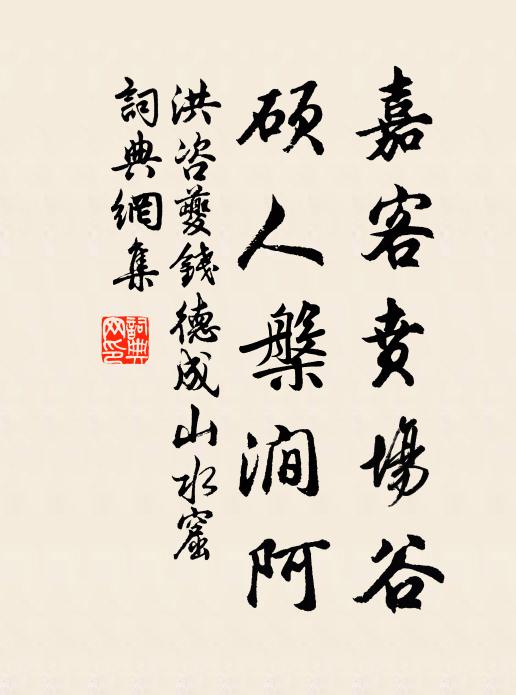 嘉客賁場谷
碩人槃澗阿
洪咨夔錢德成山水窟
詞典網集
詞典网印